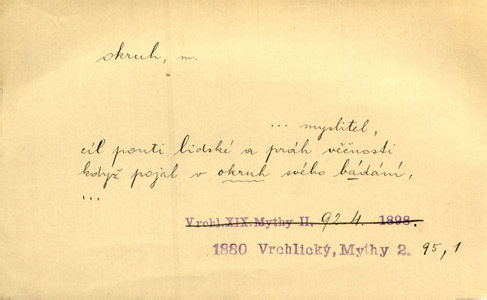 okruh, m.
... myslitel,
cíl pouti lidské a práh věčnosti
když pojal v okruh svého bádání,
...
Vrchl. XIX. Mythy II. 92 4. 1898.
1880 Vrchlický, Mythy 2. 95,1